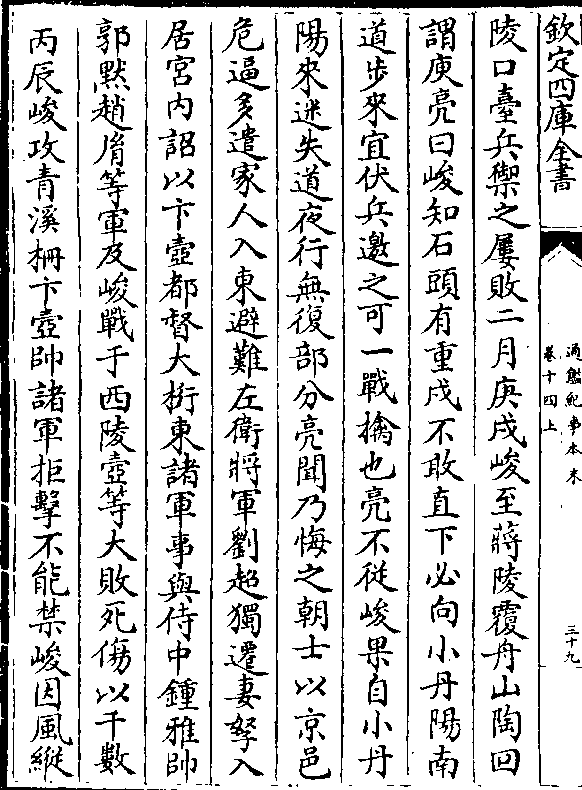 欽定四庫全書
通鑑紀事本末
卷十四上
三十九
陵口臺兵禦之屢敗二月庚戌峻至蔣陵覆舟山陶回
謂庾亮曰峻知石頭有重戍不敢直下必向小丹陽南
道步來宜伏兵邀之可一戰擒也亮不從峻果自小丹
陽來迷失道夜行無復部分亮聞乃悔之朝士以京邑
危逼多遣家人入東避難左衛將軍劉超獨遷妻孥入
居宮内詔以卞壼都督大桁東諸軍事與侍中鍾雅帥
郭黙趙㣧等軍及峻戰于西陵壼等大敗死傷以千數
丙辰峻攻青溪柵卞壼帥諸軍拒擊不能禁峻因風縱